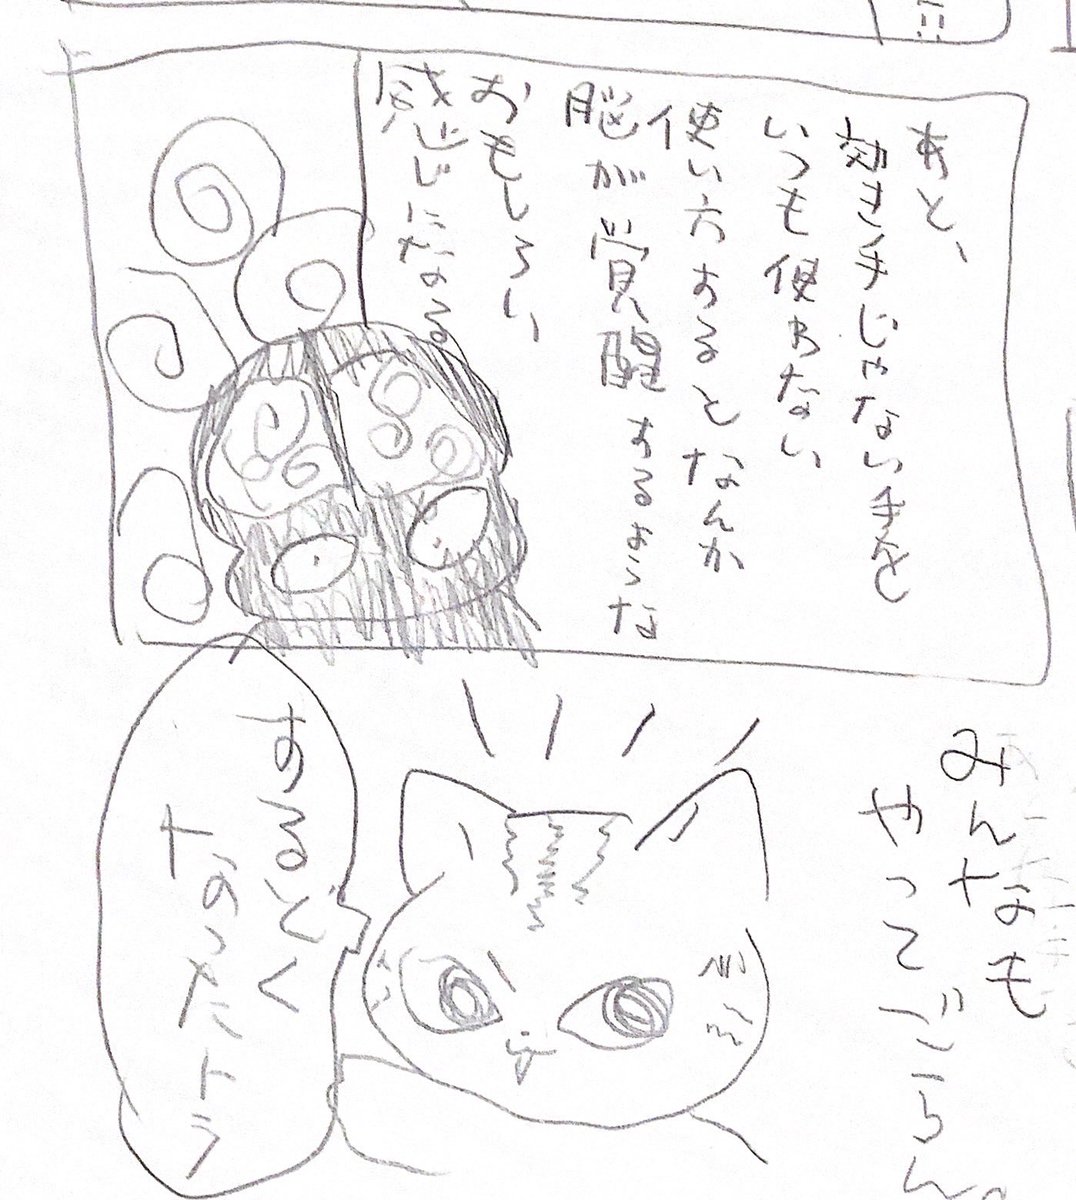 あと、
効き手じゃない手を
いつも使わない
使い方するとなんか
脳が覚醒するような
おもしろい
感じになる
みんなも
やってごらん。
するどく
なったトラ